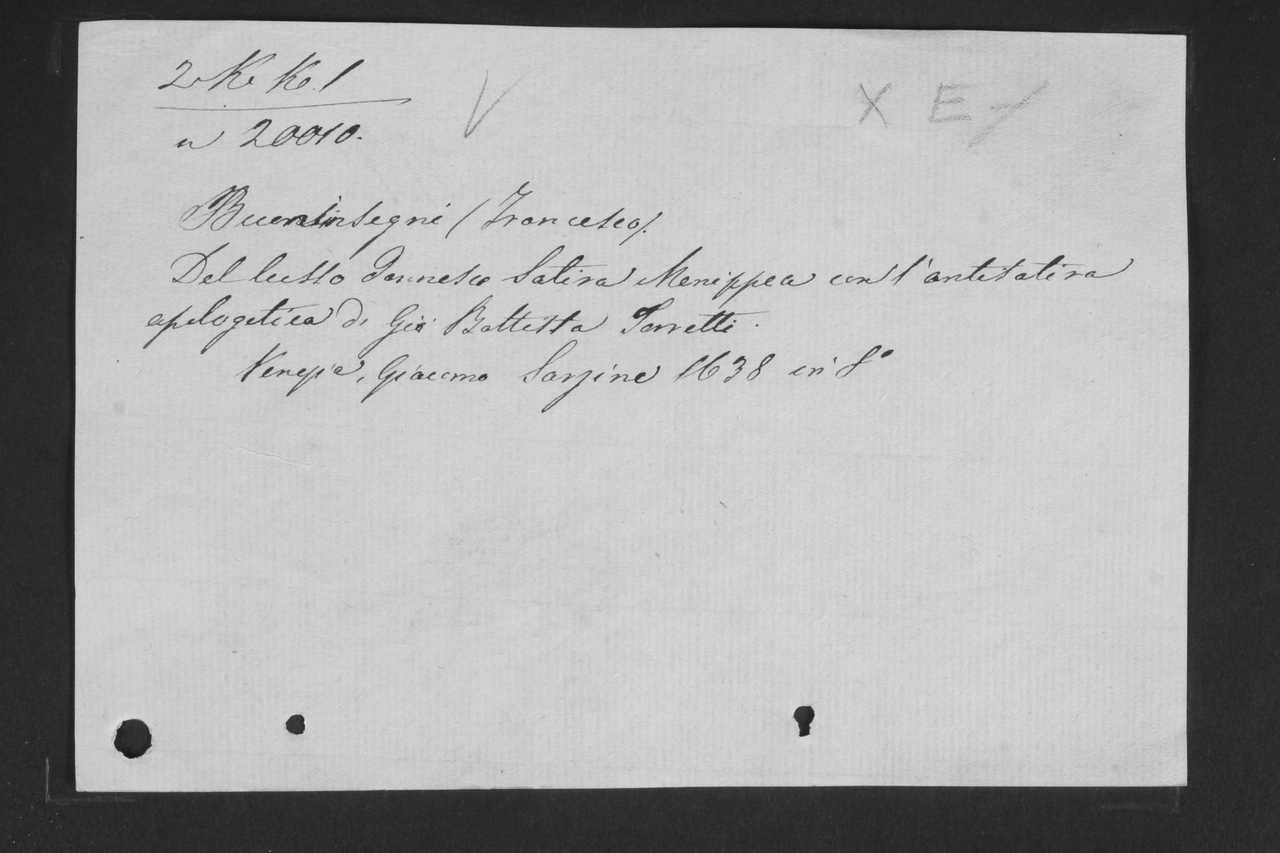 2. K. K. 1
n 20010.
V
X E -/
Buoninsegni (Francesco).
Del lusso donnesco Satira Menippea con l'antisatira
apologetica di Gio Battista Torretti.
Venezia, Giacomo Sarzine 1638 in 8°